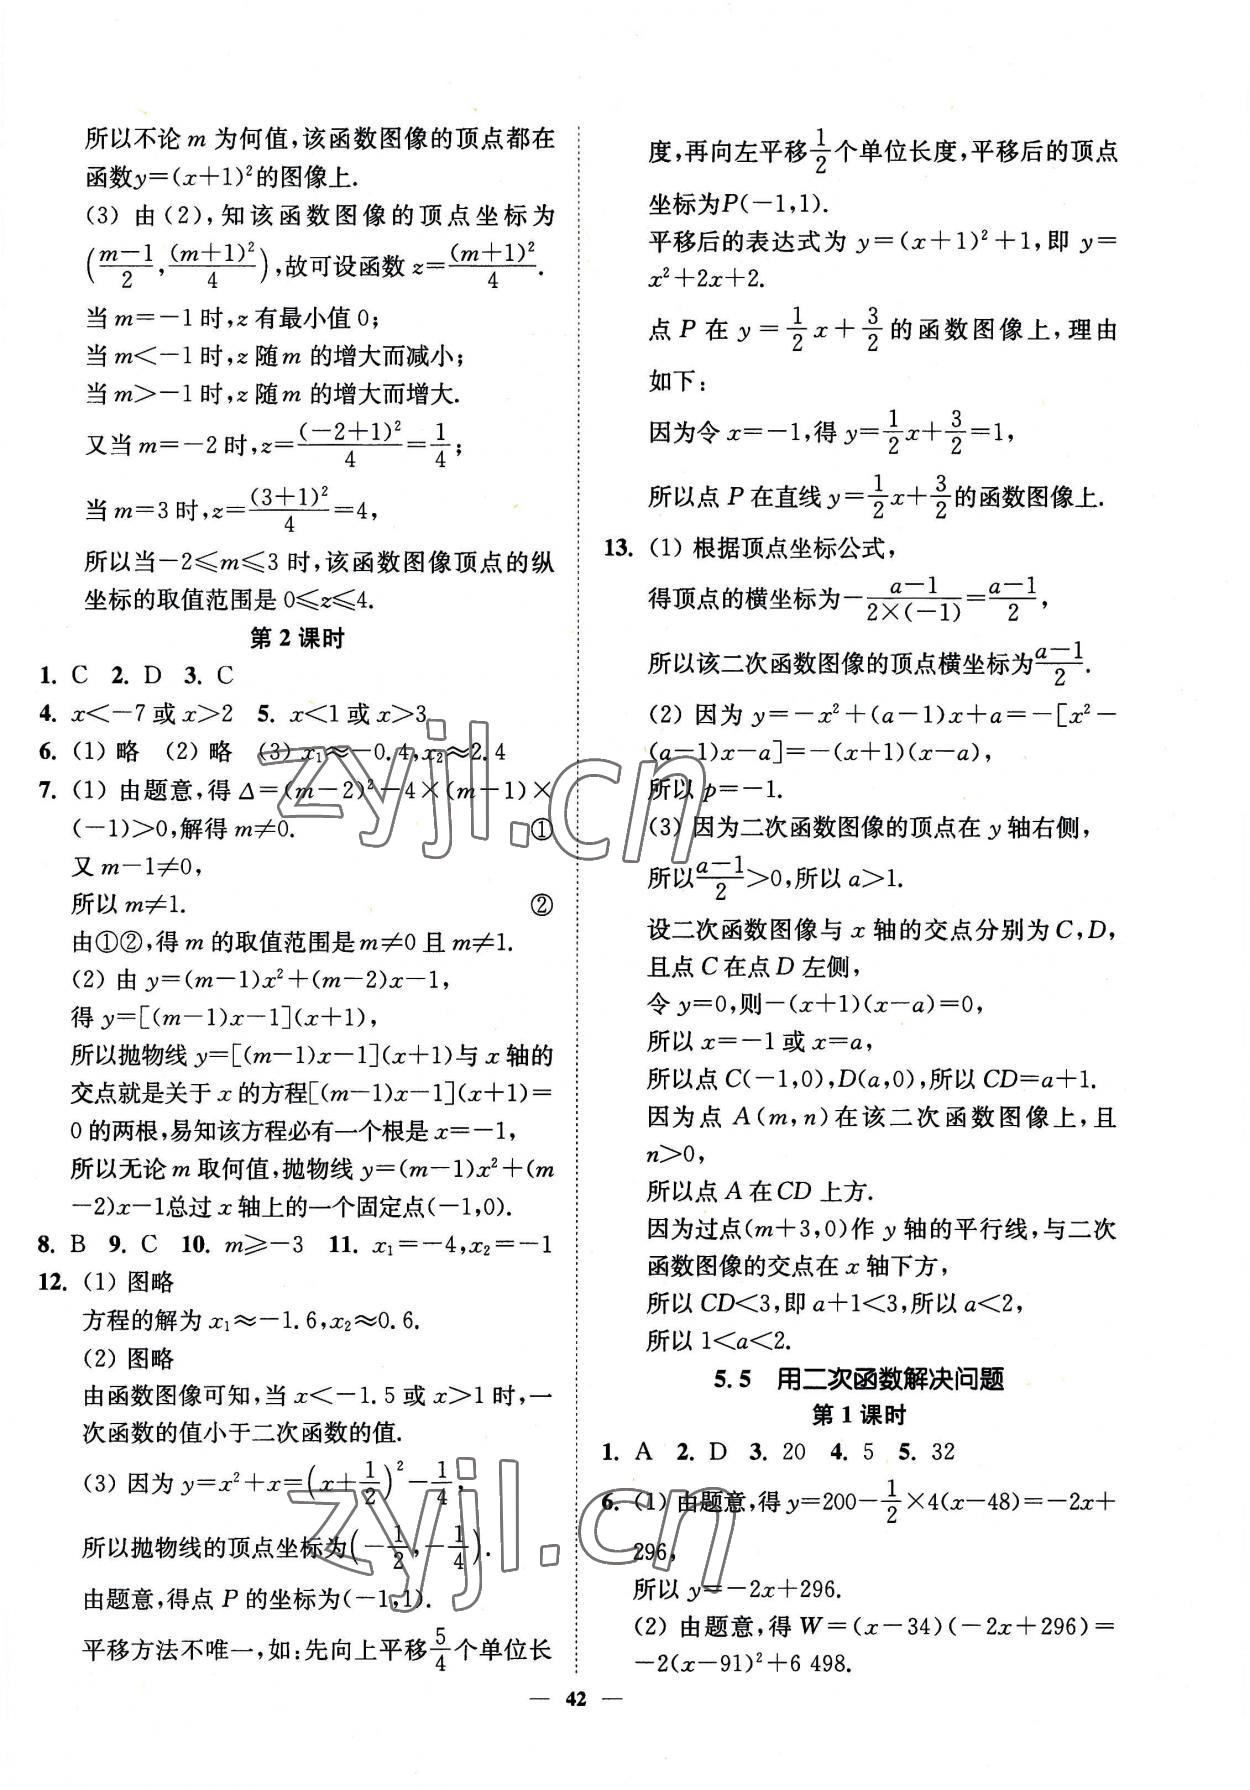 所以不论 m 为何值,该函数图像的顶点都在
函数y=(x+1)²的图像上.
(3) 由(2),知该函数图像的顶点坐标为
(\frac{m-1}{2},\frac{(m+1)²}{4}),故可设函数 z=\frac{(m+1)²}{4}.
当 m=-1 时,z 有最小值 0;
当 m<-1 时,z 随 m 的增大而减小;
当 m>-1 时,z 随 m 的增大而增大.
又当 m=-2 时,z=\frac{(-2+1)²}{4}=\frac{1}{4};
当 m=3 时,z=\frac{(3+1)²}{4}=4,
所以当-2≤m≤3 时,该函数图像顶点的纵
坐标的取值范围是 0≤z≤4.
第 2 课时
1. C 2. D 3. C
4. x<-7 或 x>2 5. x<1 或 x>3
6. (1) 略 (2) 略 (3) x₁≈-0.4,x₂≈2.4
7. (1) 由题意,得 Δ=(m-2)²-4×(m-1)×
(-1)>0,解得 m≠0. ①
又 m-1≠0,
所以 m≠1. ②
由①②,得 m 的取值范围是 m≠0 且 m≠1.
(2) 由 y=(m-1)x²+(m-2)x-1,
得 y=[(m-1)x-1](x+1),
所以抛物线 y=[(m-1)x-1](x+1)与 x 轴的
交点就是关于 x 的方程[(m-1)x-1](x+1)=
0 的两根,易知该方程必有一个根是 x=-1,
所以无论 m 取何值,抛物线 y=(m-1)x²+(m
-2)x-1总过 x 轴上的一个固定点(-1,0).
8. B 9. C 10. m≥-3 11. x₁=-4,x₂=-1
12. (1) 图略
方程的解为 x₁≈-1.6,x₂≈0.6.
(2) 图略
由函数图像可知,当 x<-1.5 或 x>1 时,一
次函数的值小于二次函数的值.
(3) 因为 y=x²+x=(x+\frac{1}{2})²-\frac{1}{4},
所以抛物线的顶点坐标为(-\frac{1}{2},-\frac{1}{4}).
由题意,得点 P 的坐标为(-1,1).
平移方法不唯一,如:先向上平移\frac{5}{4}个单位长
度,再向左平移\frac{1}{2}个单位长度,平移后的顶点
坐标为P(-1,1).
平移后的表达式为 y=(x+1)²+1,即 y=
x²+2x+2.
点 P 在 y=\frac{1}{2}x+\frac{3}{2}的函数图像上,理由
如下:
因为令 x=-1,得 y=\frac{1}{2}x+\frac{3}{2}=1,
所以点 P 在直线 y=\frac{1}{2}x+\frac{3}{2}的函数图像上.
13. (1) 根据顶点坐标公式,
得顶点的横坐标为-\frac{a-1}{2×(-1)}=\frac{a-1}{2},
所以该二次函数图像的顶点横坐标为\frac{a-1}{2}.
(2) 因为 y=-x²+(a-1)x+a=-[x²-
(a-1)x-a]=-(x+1)(x-a),
所以 p=-1.
(3) 因为二次函数图像的顶点在 y 轴右侧,
所以\frac{a-1}{2}>0,所以 a>1.
设二次函数图像与 x 轴的交点分别为 C,D,
且点 C 在点 D 左侧,
令 y=0,则-(x+1)(x-a)=0,
所以 x=-1 或 x=a,
所以点 C(-1,0),D(a,0),所以 CD=a+1.
因为点 A(m,n)在该二次函数图像上,且
n>0,
所以点 A 在 CD 上方.
因为过点(m+3,0)作 y 轴的平行线,与二次
函数图像的交点在 x 轴下方,
所以 CD<3,即 a+1<3,所以 a<2,
所以 1<a<2.
5.5 用二次函数解决问题
第 1 课时
1. A 2. D 3. 20 4. 5 5. 32
6. (1) 由题意,得 y=200-\frac{1}{2}×4(x-48)=-2x+
296,
所以 y=-2x+296.
(2) 由题意,得 W=(x-34)(-2x+296)=
-2(x-91)²+6 498.
— 42 —
zyjl.cn
zyjl.cn